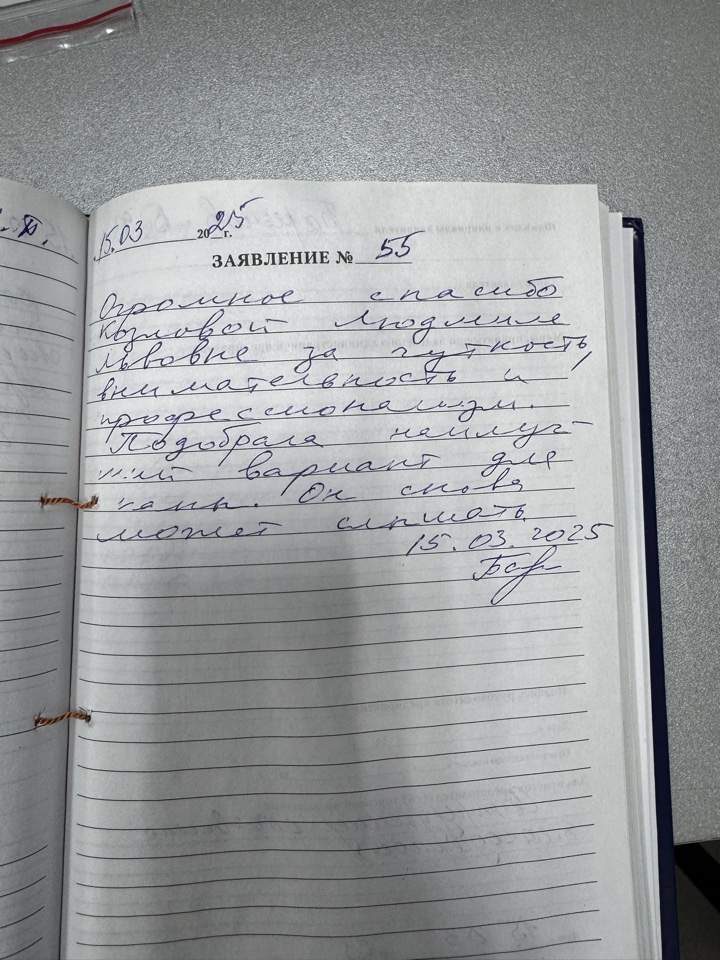 15.03 2025 г.
ЗАЯВЛЕНИЕ № 55
Огромное спасибо
Козловой Людмиле
Львовне за чуткость,
внимательность и
профессионализм.
Подобрала наилуч-
ший вариант для
папы. Он снова
может слышать.
15.03.2025